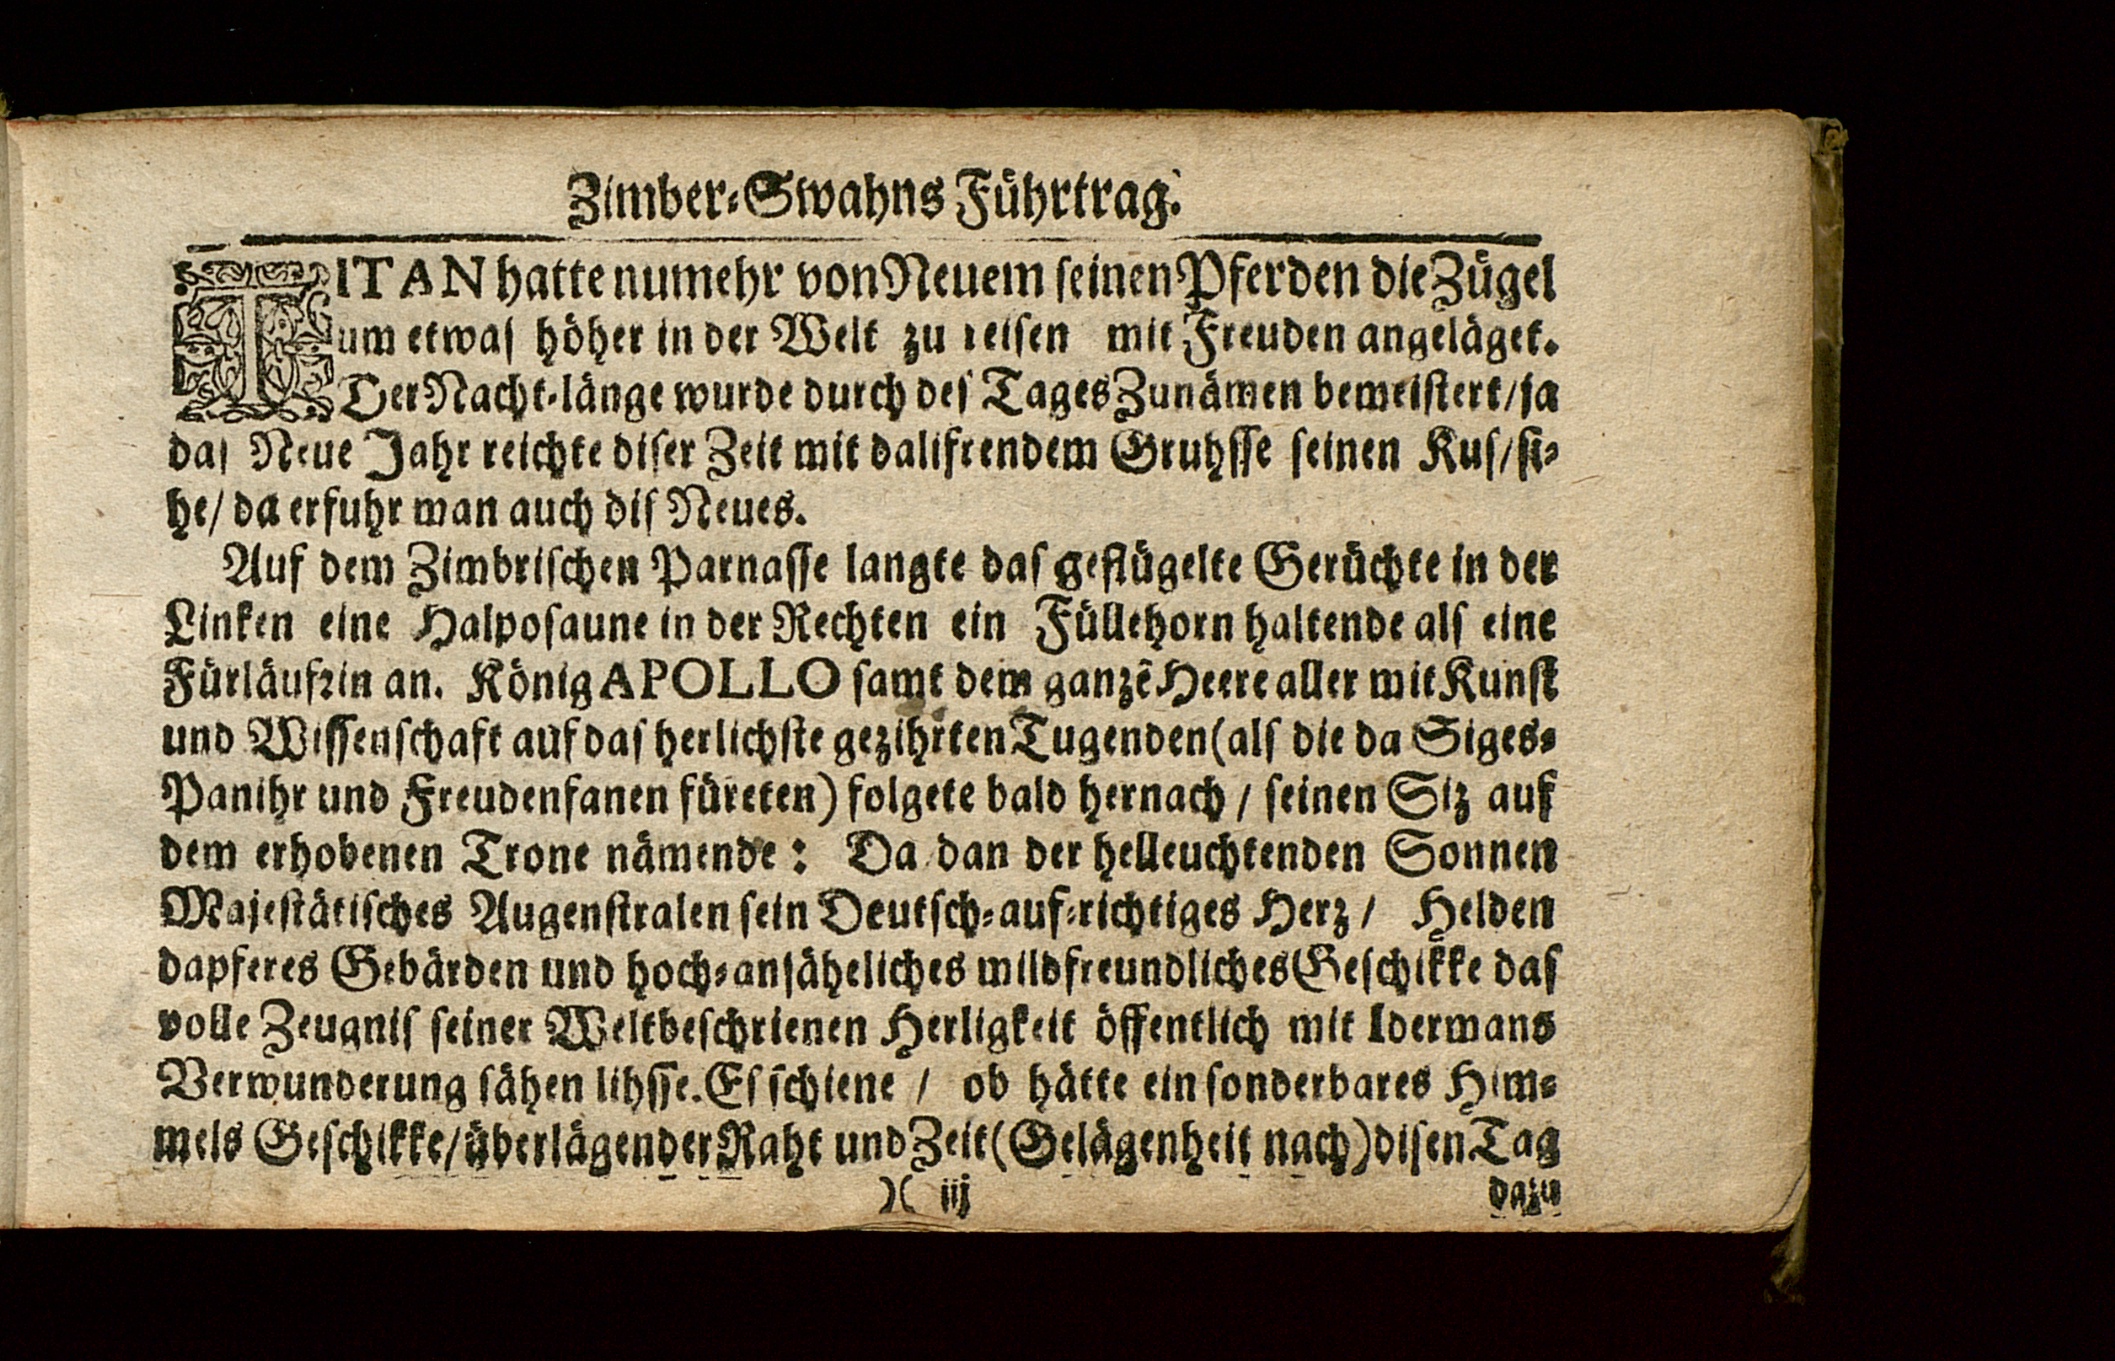 Zimber-Swahns Führtrag.
TITAN hatte numehr von Neuem seinen Pferden die Zügel
um etwaſ höher in der Welt zu reiſen mit Freuden angeläget.
Der Nacht-länge wurde durch deſ Tages Zunämen bemeiſtert/ja
daſ Neue Jahr reichte diſer Zeit mit daliſrendem Gruhſſe ſeinen Kuſ/ſi-
he/ da erfuhr man auch diſ Neues.
Auf dem Zimbriſchen Parnaſſe langte daſ geflügelte Gerüchte in der
Linken eine Halpoſaune in der Rechten ein Füllehorn haltende alſ eine
Fürläufrin an. König APOLLO ſamt dem ganzẽ Heere aller mit Kunſt
und Wiſſenſchaft auf daſ herlichſte gezihrten Tugenden(alſ die da Siges-
Panihr und Freudenfanen füreten) folgete bald hernach / ſeinen Siz auf
dem erhobenen Trone nämende: Da dan der helleuchtenden Sonnen
Majeſtätiſches Augenſtralen ſein Deutſch-auf-richtiges Herz / Helden
dapferes Gebärden und hoch-anſäheliches mildfreundliches Geſchikke daſ
volle Zeugniſ ſeiner Weltbeſchrienen Herligkeit öffentlich mit Idermans
Verwunderung ſähen lihſſe. Eſ ſchiene / ob hätte ein ſonderbares Him-
mels Geſchikke/überlägender Raht und Zeit(Gelägenheit nach)diſen Tag
)( iij
dazu